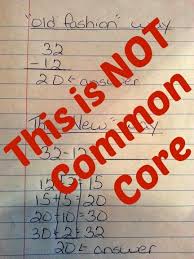 "Old fashion" way
32
-12
20 ← answer
The "New" way
32-12
12+3=15
15+5=20
20+10=30
30+2=32
20 ← answer
This is NOT
Common
Core